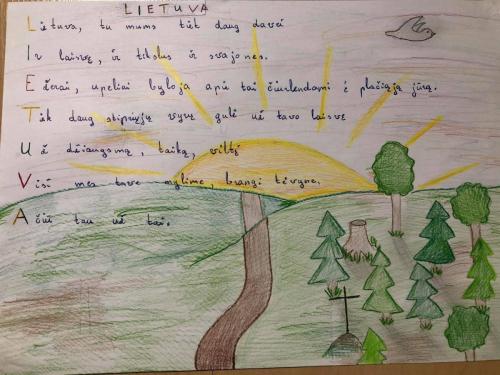 LIETUVA
Lietuva, tu mums tiek daug davei
Ir laisvę, ir tikslus ir svajones.
Ežerai, upeliai byloja apie tai čiurlendami į plačiąją jūrą.
Tiek daug stiprujų vyrų gulė už tavo laisvę
Už džiaugsmą, taiką, viltį
Visi mes tave mylime, brangi tėvyne.
Ačiū tau už tai.